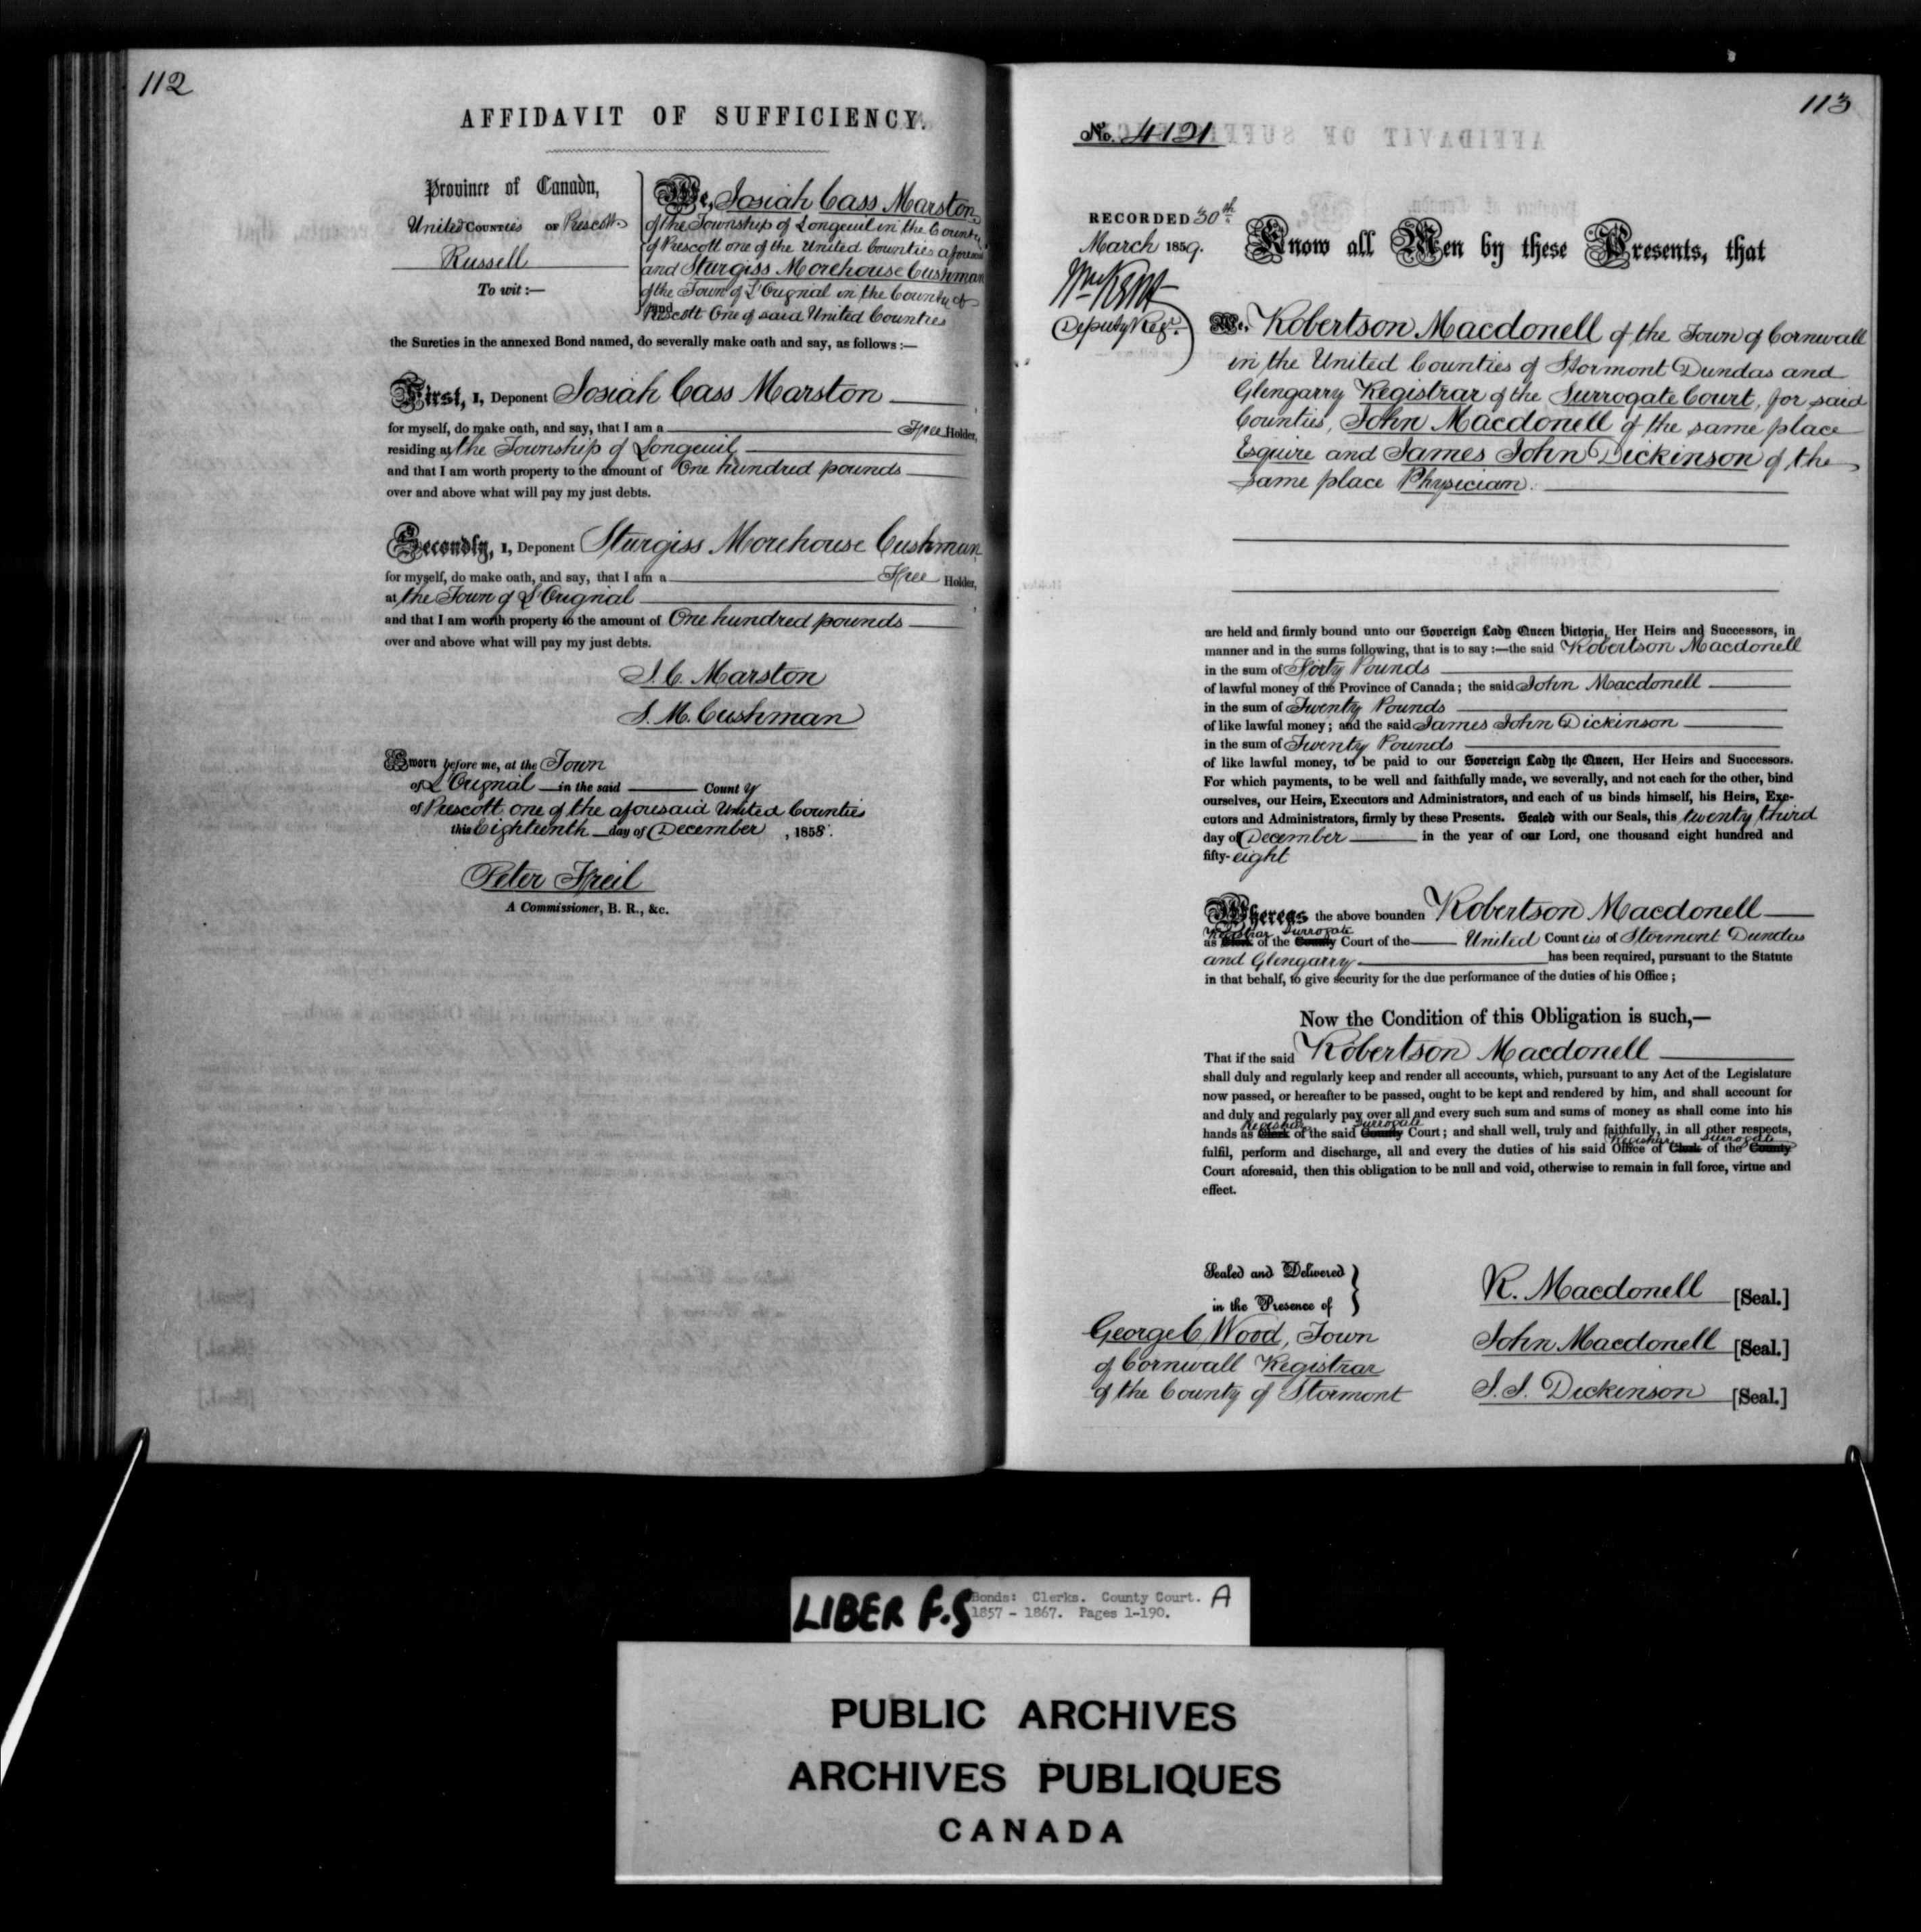 112
AFFIDAVIT OF SUFFICIENCY.
Province of Canada,
United Counties of Prescott
Russell
To wit:—
We, Josiah Cass Marston
of the Township of Longeuil in the County
of Prescott one of the United Counties aforesaid
and Sturgiss Morehouse Cushman
of the Town of L'Orignal in the County of
Prescott One of said United Counties
the Sureties in the annexed Bond named, do severally make oath and say, as follows:—
First, I, Deponent Josiah Cass Marston
for myself, do make oath, and say, that I am a Free Holder,
residing at the Township of Longeuil
and that I am worth property to the amount of One hundred pounds
over and above what will pay my just debts.
Secondly, I, Deponent Sturgiss Morehouse Cushman
for myself, do make oath, and say, that I am a Free Holder,
at the Town of L'Orignal
and that I am worth property to the amount of One hundred pounds
over and above what will pay my just debts.
J. C. Marston
S. M. Cushman
Sworn before me, at the Town
of L'Orignal in the said County
of Prescott one of the aforesaid United Counties
this Eighteenth day of December, 1858.
Peter Freil
A Commissioner, B. R., &c.
113
No. 4121
RECORDED 30th
March 1859.
Deputy Regr.
Know all Men by these Presents, that
We, Robertson Macdonell of the Town of Cornwall
in the United Counties of Stormont Dundas and
Glengarry Registrar of the Surrogate Court, for said
Counties, John Macdonell of the same place
Esquire and James John Dickinson of the
same place Physician.
are held and firmly bound unto our Sovereign Lady Queen Victoria, Her Heirs and Successors, in
manner and in the sums following, that is to say:—the said Robertson Macdonell
in the sum of Forty Pounds
of lawful money of the Province of Canada; the said John Macdonell
in the sum of Twenty Pounds
of like lawful money; and the said James John Dickinson
in the sum of Twenty Pounds
of like lawful money, to be paid to our Sovereign Lady the Queen, Her Heirs and Successors.
For which payments, to be well and faithfully made, we severally, and not each for the other, bind
ourselves, our Heirs, Executors and Administrators, and each of us binds himself, his Heirs, Exe-
cutors and Administrators, firmly by these Presents. Sealed with our Seals, this twenty third
day of December in the year of our Lord, one thousand eight hundred and
fifty-eight
Whereas the above bounden Robertson Macdonell
Registrar Surrogate
as Clerk of the County Court of the United Counties of Stormont Dundas
and Glengarry has been required, pursuant to the Statute
in that behalf, to give security for the due performance of the duties of his Office;
Now the Condition of this Obligation is such,—
That if the said Robertson Macdonell
shall duly and regularly keep and render all accounts, which, pursuant to any Act of the Legislature
now passed, or hereafter to be passed, ought to be kept and rendered by him, and shall account for
and duly and regularly pay over all and every such sum and sums of money as shall come into his
Registrar Surrogate
hands as Clerk of the said County Court; and shall well, truly and faithfully, in all other respects,
Registrar Surrogate
fulfil, perform and discharge, all and every the duties of his said Office of Clerk of the County
Court aforesaid, then this obligation to be null and void, otherwise to remain in full force, virtue and
effect.
Sealed and Delivered
in the Presence of
George C Wood, Town
of Cornwall Registrar
of the County of Stormont
R. Macdonell [Seal.]
John Macdonell [Seal.]
J. J. Dickinson [Seal.]
LIBER F.S
Bonds: Clerks. County Court. A
1857 - 1867. Pages 1-190.
PUBLIC ARCHIVES
ARCHIVES PUBLIQUES
CANADA